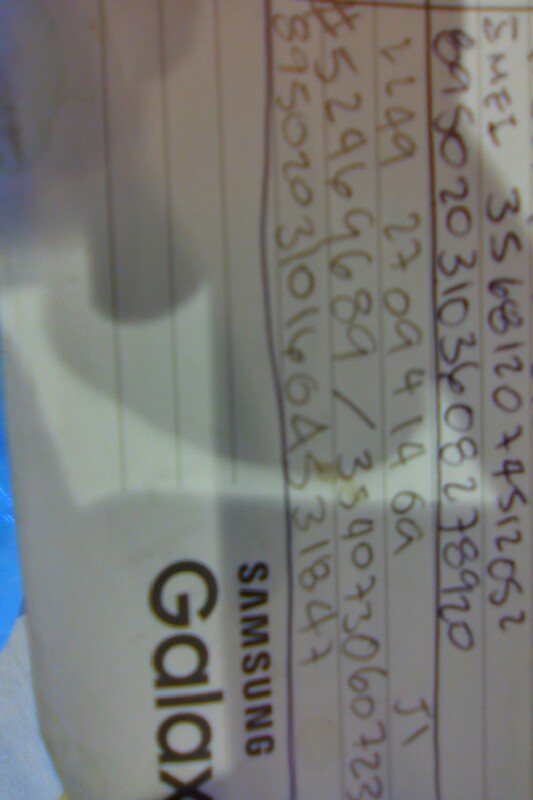 IMEI 356812074512052
8950203103608278920
1249 27094146a J1
#52969689 / 354073060723
89502031016604531847
SAMSUNG
Galax